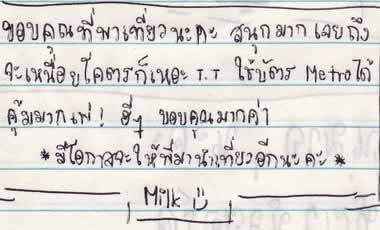 ขอบคุณที่พาเที่ยวนะคะ สนุกมากเลยถึง
จะเหนื่อยโคตรก็เหอะ T.T ใช้บัตร Metro ได้
คุ้มมากเพ่! ฮี่ๆ ขอบคุณมากค่า
* มีโอกาสจะให้พี่มานำเที่ยวอีกนะคะ *
Milk